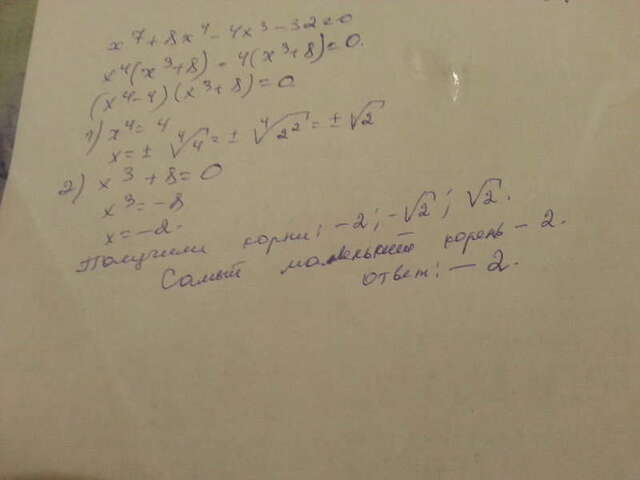 x⁷ + 8x⁴ - 4x³ - 32 = 0
x⁴(x³+8) - 4(x³+8) = 0.
(x⁴-4)(x³+8) = 0
1) x⁴ = 4
x = ± ⁴√4 = ± ⁴√2² = ± √2
2) x³ + 8 = 0
x³ = -8
x = -2.
Получили корни: -2; -√2; √2.
Самый маленький корень - 2.
ответ: - 2.